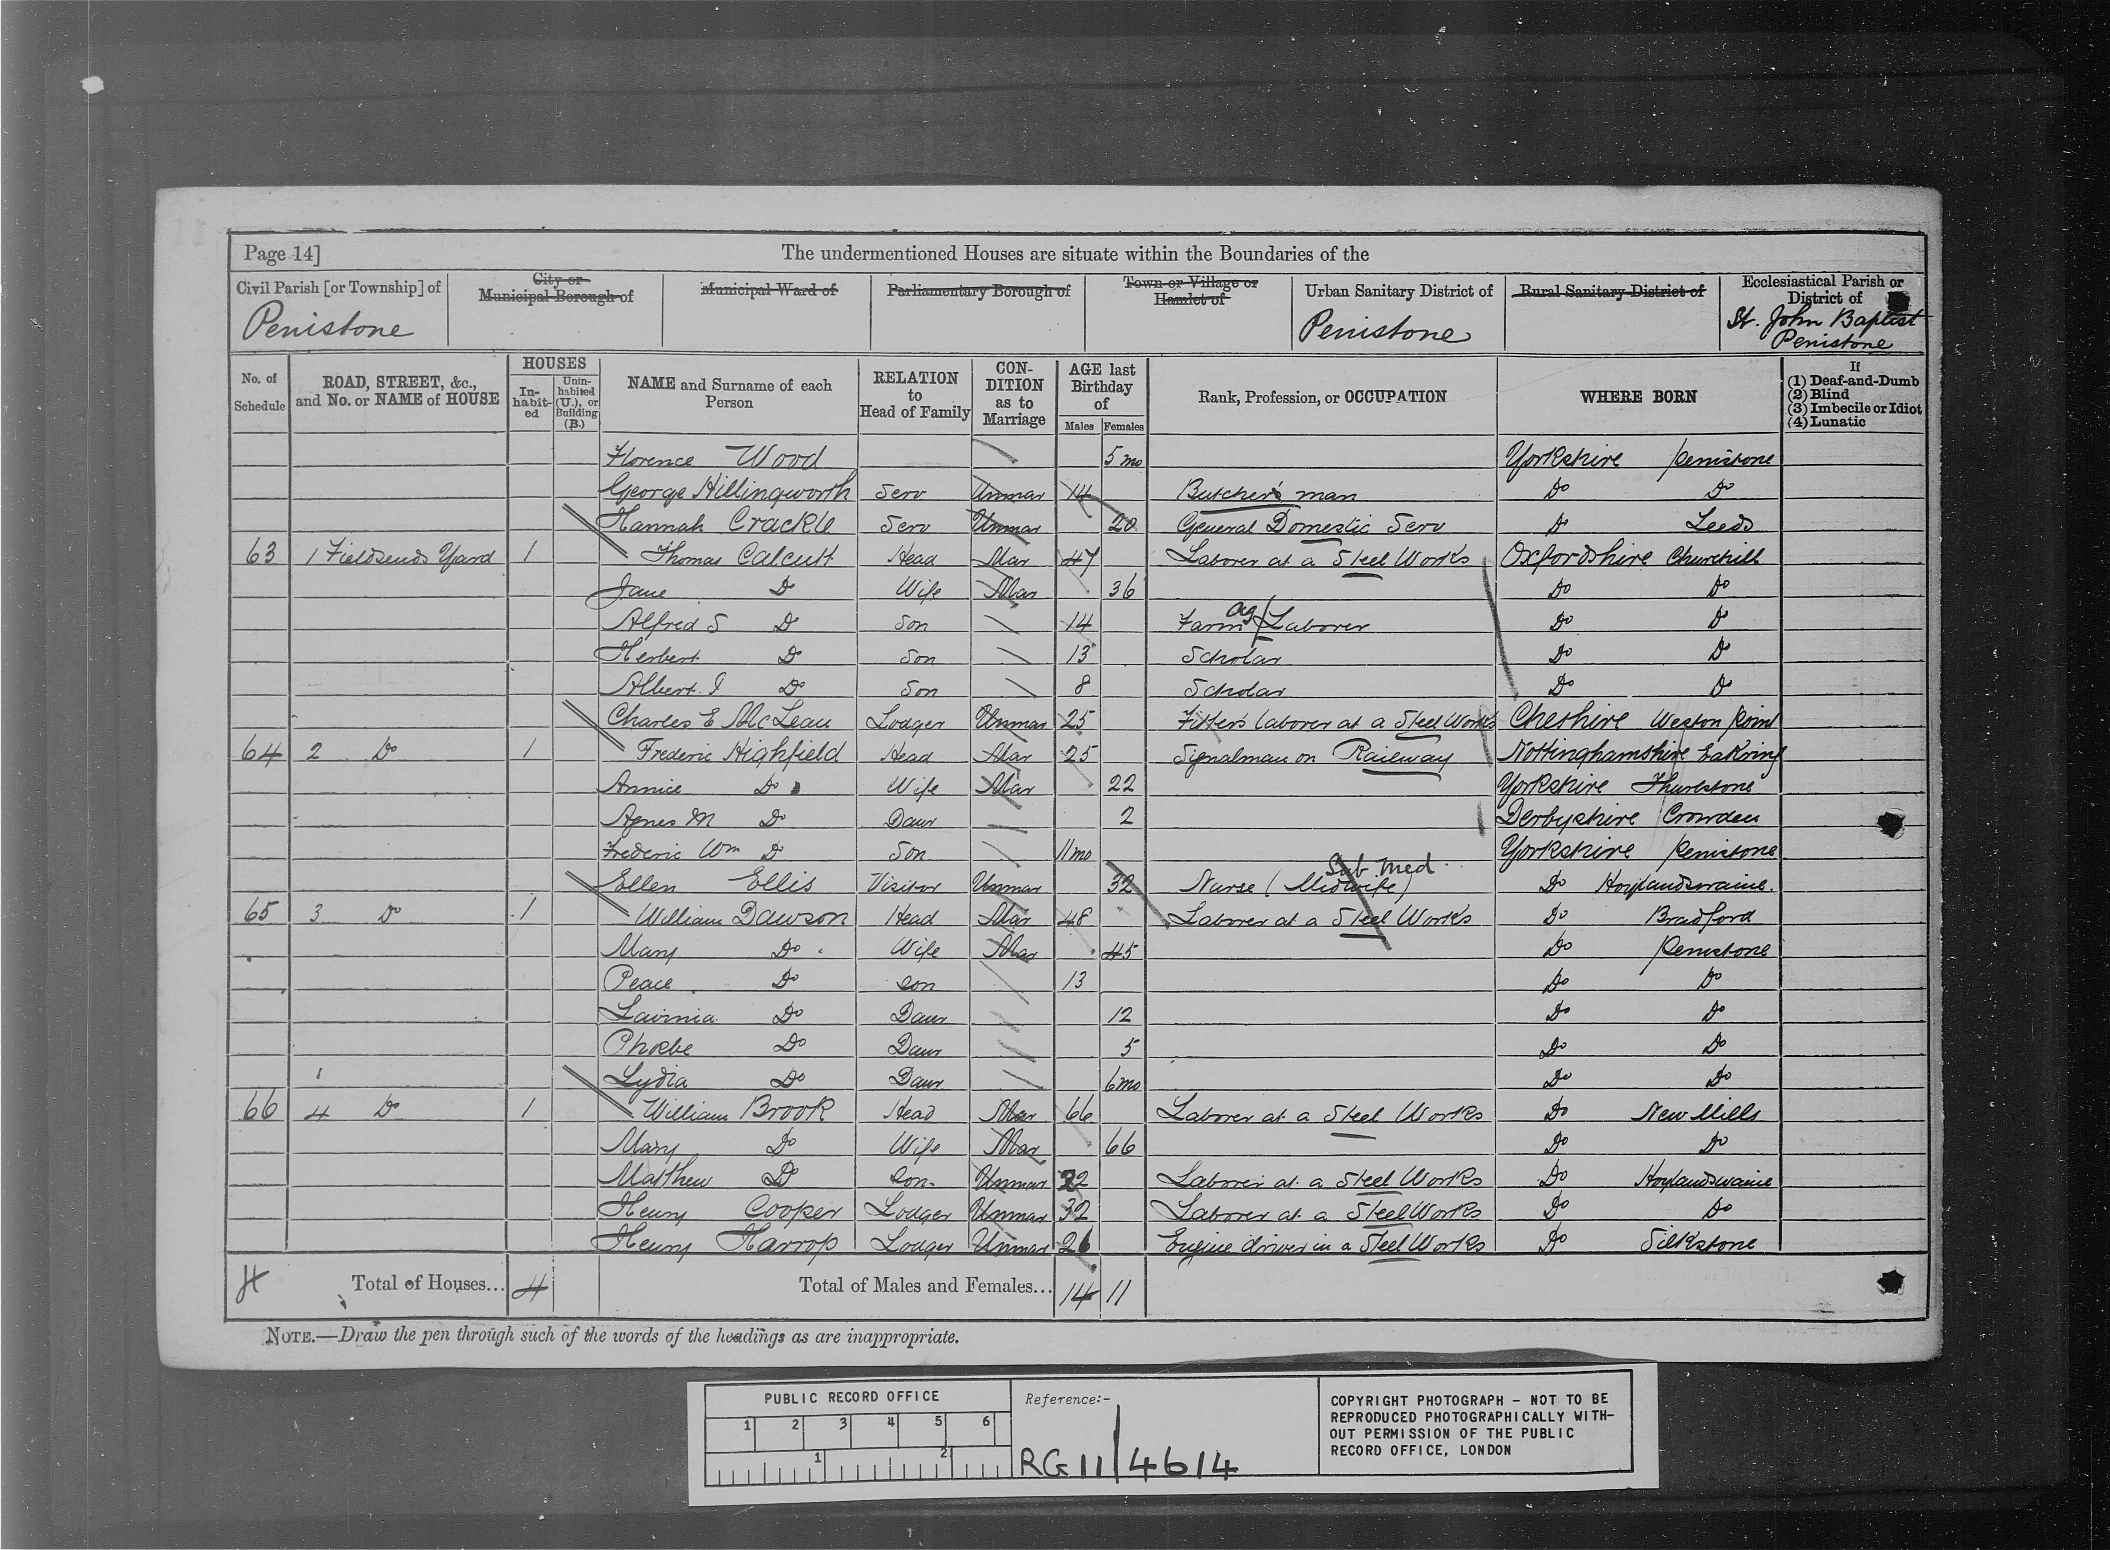 Page 14] The undermentioned Houses are situate within the Boundaries of the
Civil Parish [or Township] of City or Municipal Borough of Municipal Ward of Parliamentary Borough of Town or Village or Hamlet of Urban Sanitary District of Rural Sanitary District of Ecclesiastical Parish or District of
Penistone Penistone St. John Baptist Penistone
No. of Schedule ROAD, STREET, &c., and No. or NAME of HOUSE HOUSES In-habit-ed Unin-habited (U.), or Building (B.) NAME and Surname of each Person RELATION to Head of Family CON-DITION as to Marriage AGE last Birthday of Males Females Rank, Profession, or OCCUPATION WHERE BORN If (1) Deaf-and-Dumb (2) Blind (3) Imbecile or Idiot (4) Lunatic
Florence Wood 5 mo Yorkshire Penistone
George Hillingworth Serv Unmar 14 Butcher's man Do Do
Hannah Crackle Serv Unmar 20 General Domestic Serv Do Leeds
63 1 Fieldsends Yard 1 Thomas Calcutt Head Mar 47 Laborer at a Steel Works Oxfordshire Churchill
Jane Do Wife Mar 36 Do Do
Alfred S Do Son 14 Farm ag Laborer Do Do
Herbert Do Son 13 Scholar Do Do
Albert J Do Son 8 Scholar Do Do
Charles E McLean Lodger Unmar 25 Fitter's laborer at a Steel Works Cheshire Weston Point
64 2 Do 1 Frederic Highfield Head Mar 25 Signalman on Railway Nottinghamshire Eakring
Annice Do Wife Mar 22 Yorkshire Thurlstone
Agnes M Do Daur 2 Derbyshire Crowden
Frederic Wm Do Son 11mo Yorkshire Penistone
Ellen Ellis Visitor Unmar 32 Nurse (Midwife) Sub. Med. Do Hoylandswaine.
65 3 Do 1 William Dawson Head Mar 48 Laborer at a Steel Works Do Bradford
Mary Do Wife Mar 45 Do Penistone
Peace Do Son 13 Do Do
Lavinia Do Daur 12 Do Do
Phoebe Do Daur 5 Do Do
Lydia Do Daur 6mo Do Do
66 4 Do 1 William Brook Head Mar 66 Laborer at a Steel Works Do New Mills
Mary Do Wife Mar 66 Do Do
Matthew Do Son Unmar 22 Laborer at a Steel Works Do Hoylandswaine
Henry Cooper Lodger Unmar 32 Laborer at a Steel Works Do Do
Henry Harrop Lodger Unmar 26 Engine driver in a Steel Works Do Silkstone
4 Total of Houses... 4 Total of Males and Females... 14 11
NOTE.—Draw the pen through such of the words of the headings as are inappropriate.
PUBLIC RECORD OFFICE
1 2 3 4 5 6
1 2
Reference:-
RG 11/4614
COPYRIGHT PHOTOGRAPH - NOT TO BE
REPRODUCED PHOTOGRAPHICALLY WITH-
OUT PERMISSION OF THE PUBLIC
RECORD OFFICE, LONDON